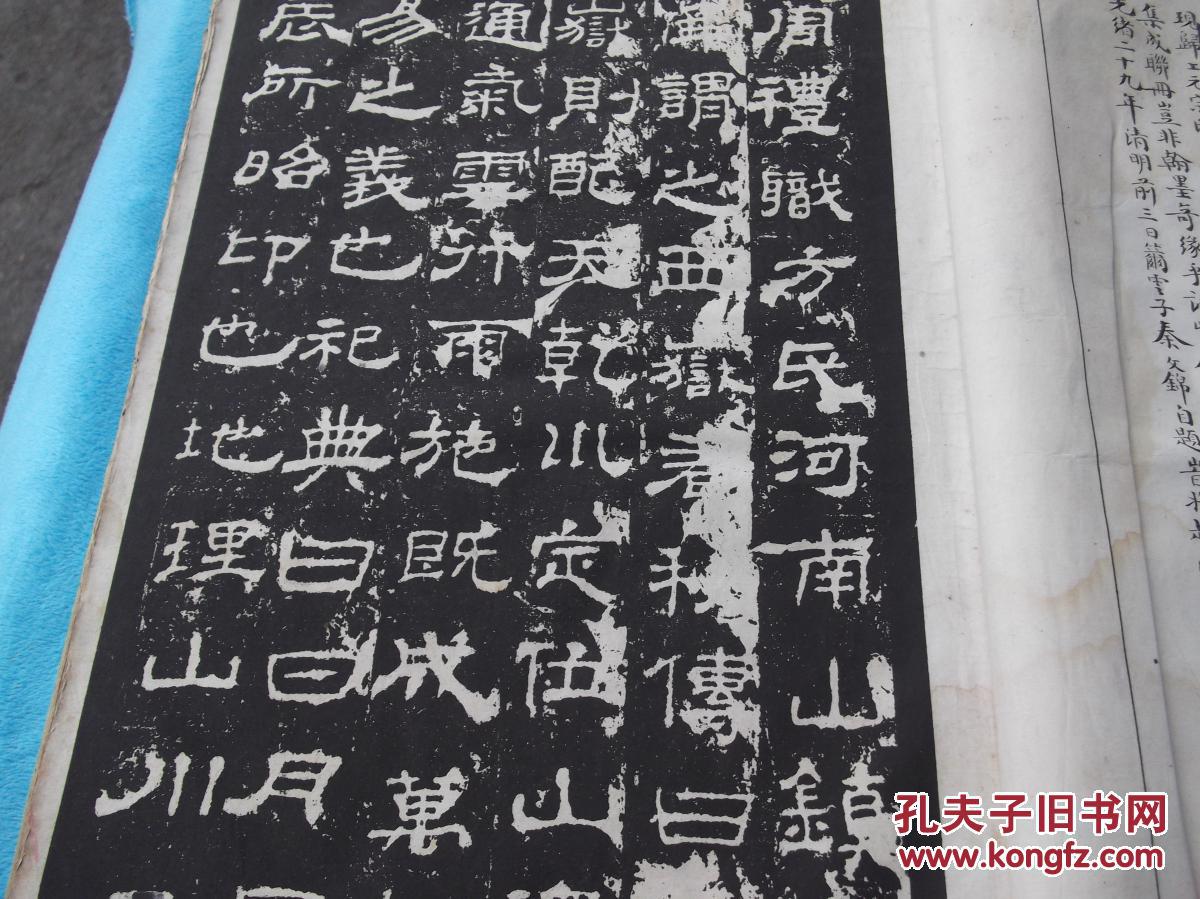 集成聯冊豈非翰墨奇緣
光緒二十九年清明前三日簫雲子秦文錦自題
周禮職方氏河南山鎮
謂之西嶽春秋傳曰
嶽則配天乾川定位山
通氣雲行雨施既成萬
易之義也祀典曰日月
辰所昭卬也地理山川
孔夫子旧书网
www.kongfz.com